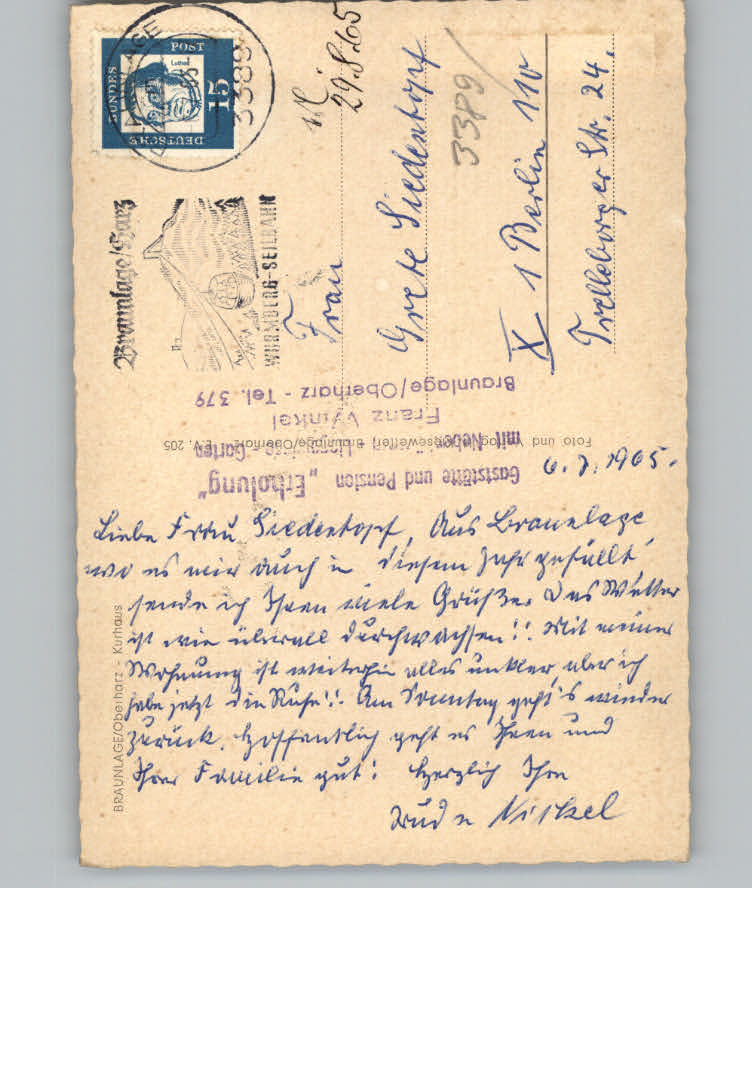 6.7.1965.
Liebe Frau Siedentopf, Aus Braunlage,
wo es mir auch in diesem Jahr gefällt,
sende ich Ihnen viele Grüße. Das Wetter
ist wie überall durchwachsen!! Mit meiner
Wohnung ist weiterhin alles unklar, aber ich
habe jetzt die Ruhe!! Am Sonntag geht's wieder
zurück. Hoffentlich geht es Ihnen und
Ihrer Familie gut! Herzlich Ihre
Nickel
Frau
Grete Siedentopf
X 1 Berlin 110
Trelleborger Str. 24.
3389
29.8.65
DEUTSCHE BUNDESPOST
Luther
15
3389
Braunlage/Harz
WURMBERG-SEILBAHN
Gaststätte und Pension „Erholung"
mit Nebenräumen - Liegewiese - Garten
Franz Winkel
Braunlage/Oberharz - Tel. 379
Foto und Verlag Braunlage/Oberharz 205
BRAUNLAGE/Oberharz - Kurhaus